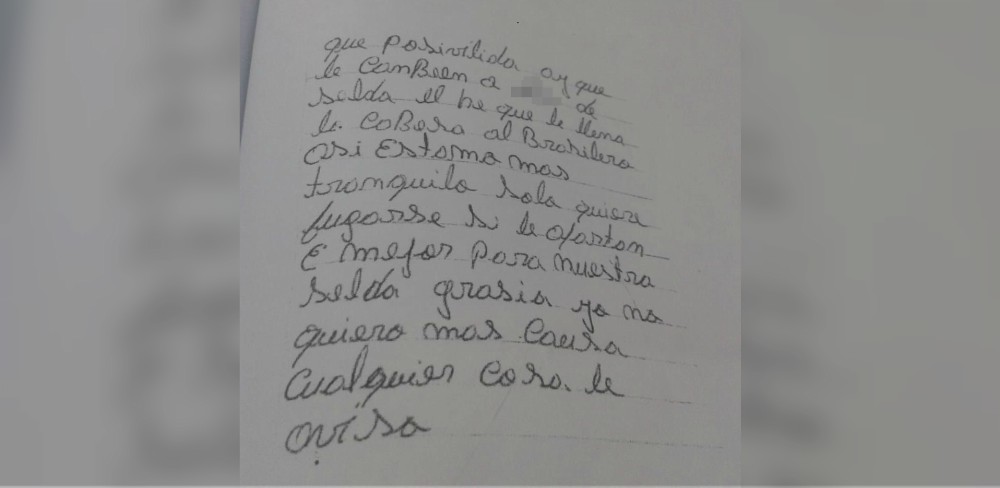 que posivilida ay que
le canBeen a de
selda el he que le llena
la coBesa al Brasilero
asi Estoma mas
tranquilo solo quiere
fugarse si le aportan
E mejor para nuestra
selda grasia yo no
quiero mas causa
cualquier cosa le
aviso